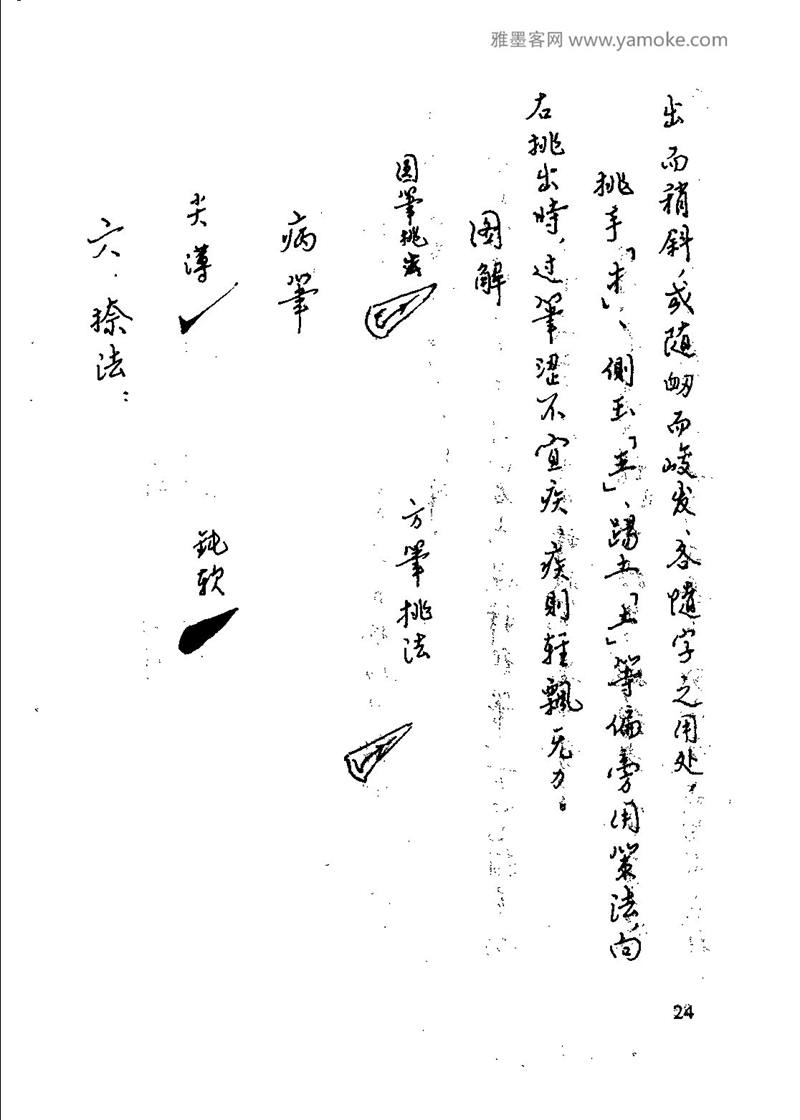 雅墨客网 www.yamoke.com
出而稍斜，或随衄而峻发，各随字之用处，
挑手「扌」、侧玉「𤣩」、踢土「土」等偏旁用策法，向
右挑出時，过筆涩不宜疾，疾則轻飄无力。
图解
圆筆挑法
方筆挑法
病筆
尖薄
鈍软
六．捺法：
24